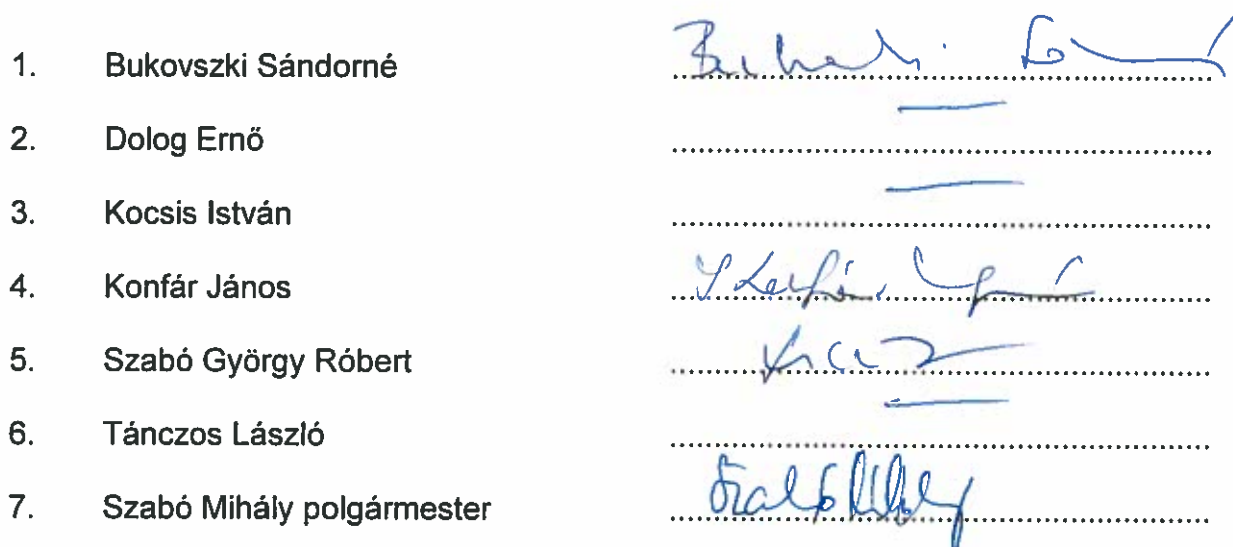 1. Bukovszki Sándorné
2. Dolog Ernő
3. Kocsis István
4. Konfár János
5. Szabó György Róbert
6. Tánczos László
7. Szabó Mihály polgármester Szabó Mihály